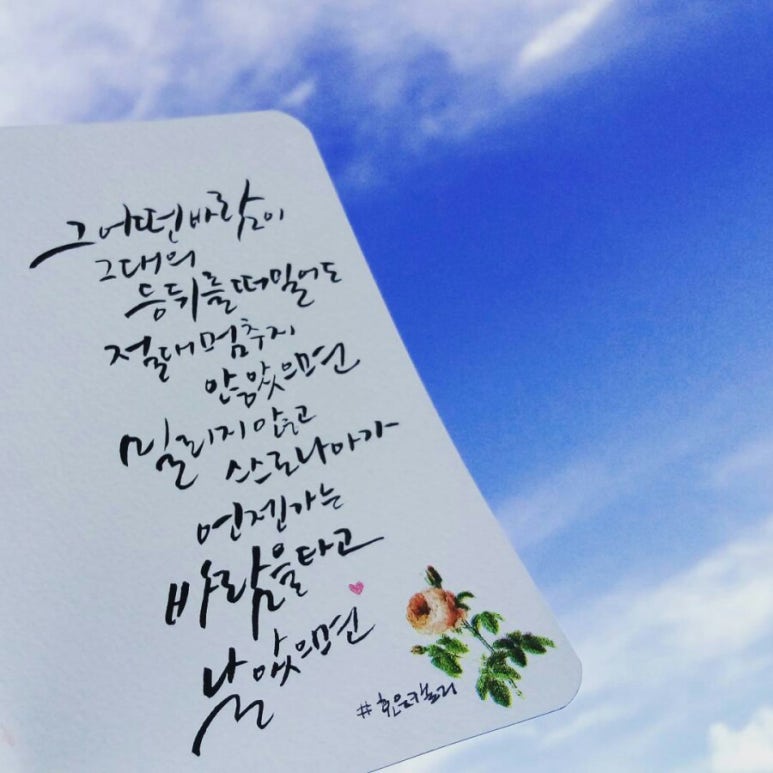 그어떤바람이
그대의
등뒤를떠밀어도
절대멈추지
안음았으면
밀리지안흐고
스스로나아가
언젠가는
바람을타고
날았으면
#힌읍캘리